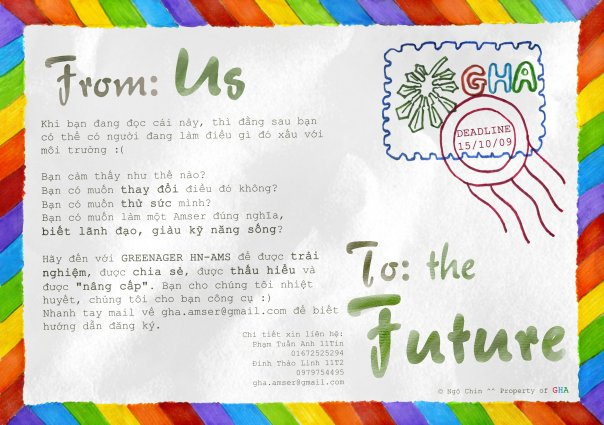 From: Us
Khi bạn đang đọc cái này, thì đằng sau bạn
có thể có người đang làm điều gì đó xấu với
môi trường :(
Bạn cảm thấy như thế nào?
Bạn có muốn thay đổi điều đó không?
Bạn có muốn thử sức mình?
Bạn có muốn làm một Amser đúng nghĩa,
biết lãnh đạo, giàu kỹ năng sống?
Hãy đến với GREENAGER HN-AMS để được trải
nghiệm, được chia sẻ, được thấu hiểu và
được "nâng cấp". Bạn cho chúng tôi nhiệt
huyết, chúng tôi cho bạn công cụ :)
Nhanh tay mail về gha.amser@gmail.com để biết
hướng dẫn đăng ký.
Chi tiết xin liên hệ:
Phạm Tuấn Anh 11Tin
01672525294
Đinh Thảo Linh 11T2
0979754495
gha.amser@gmail.com
GHA
DEADLINE
15/10/09
To: the
Future
© Ngô Chin ^^ Property of GHA